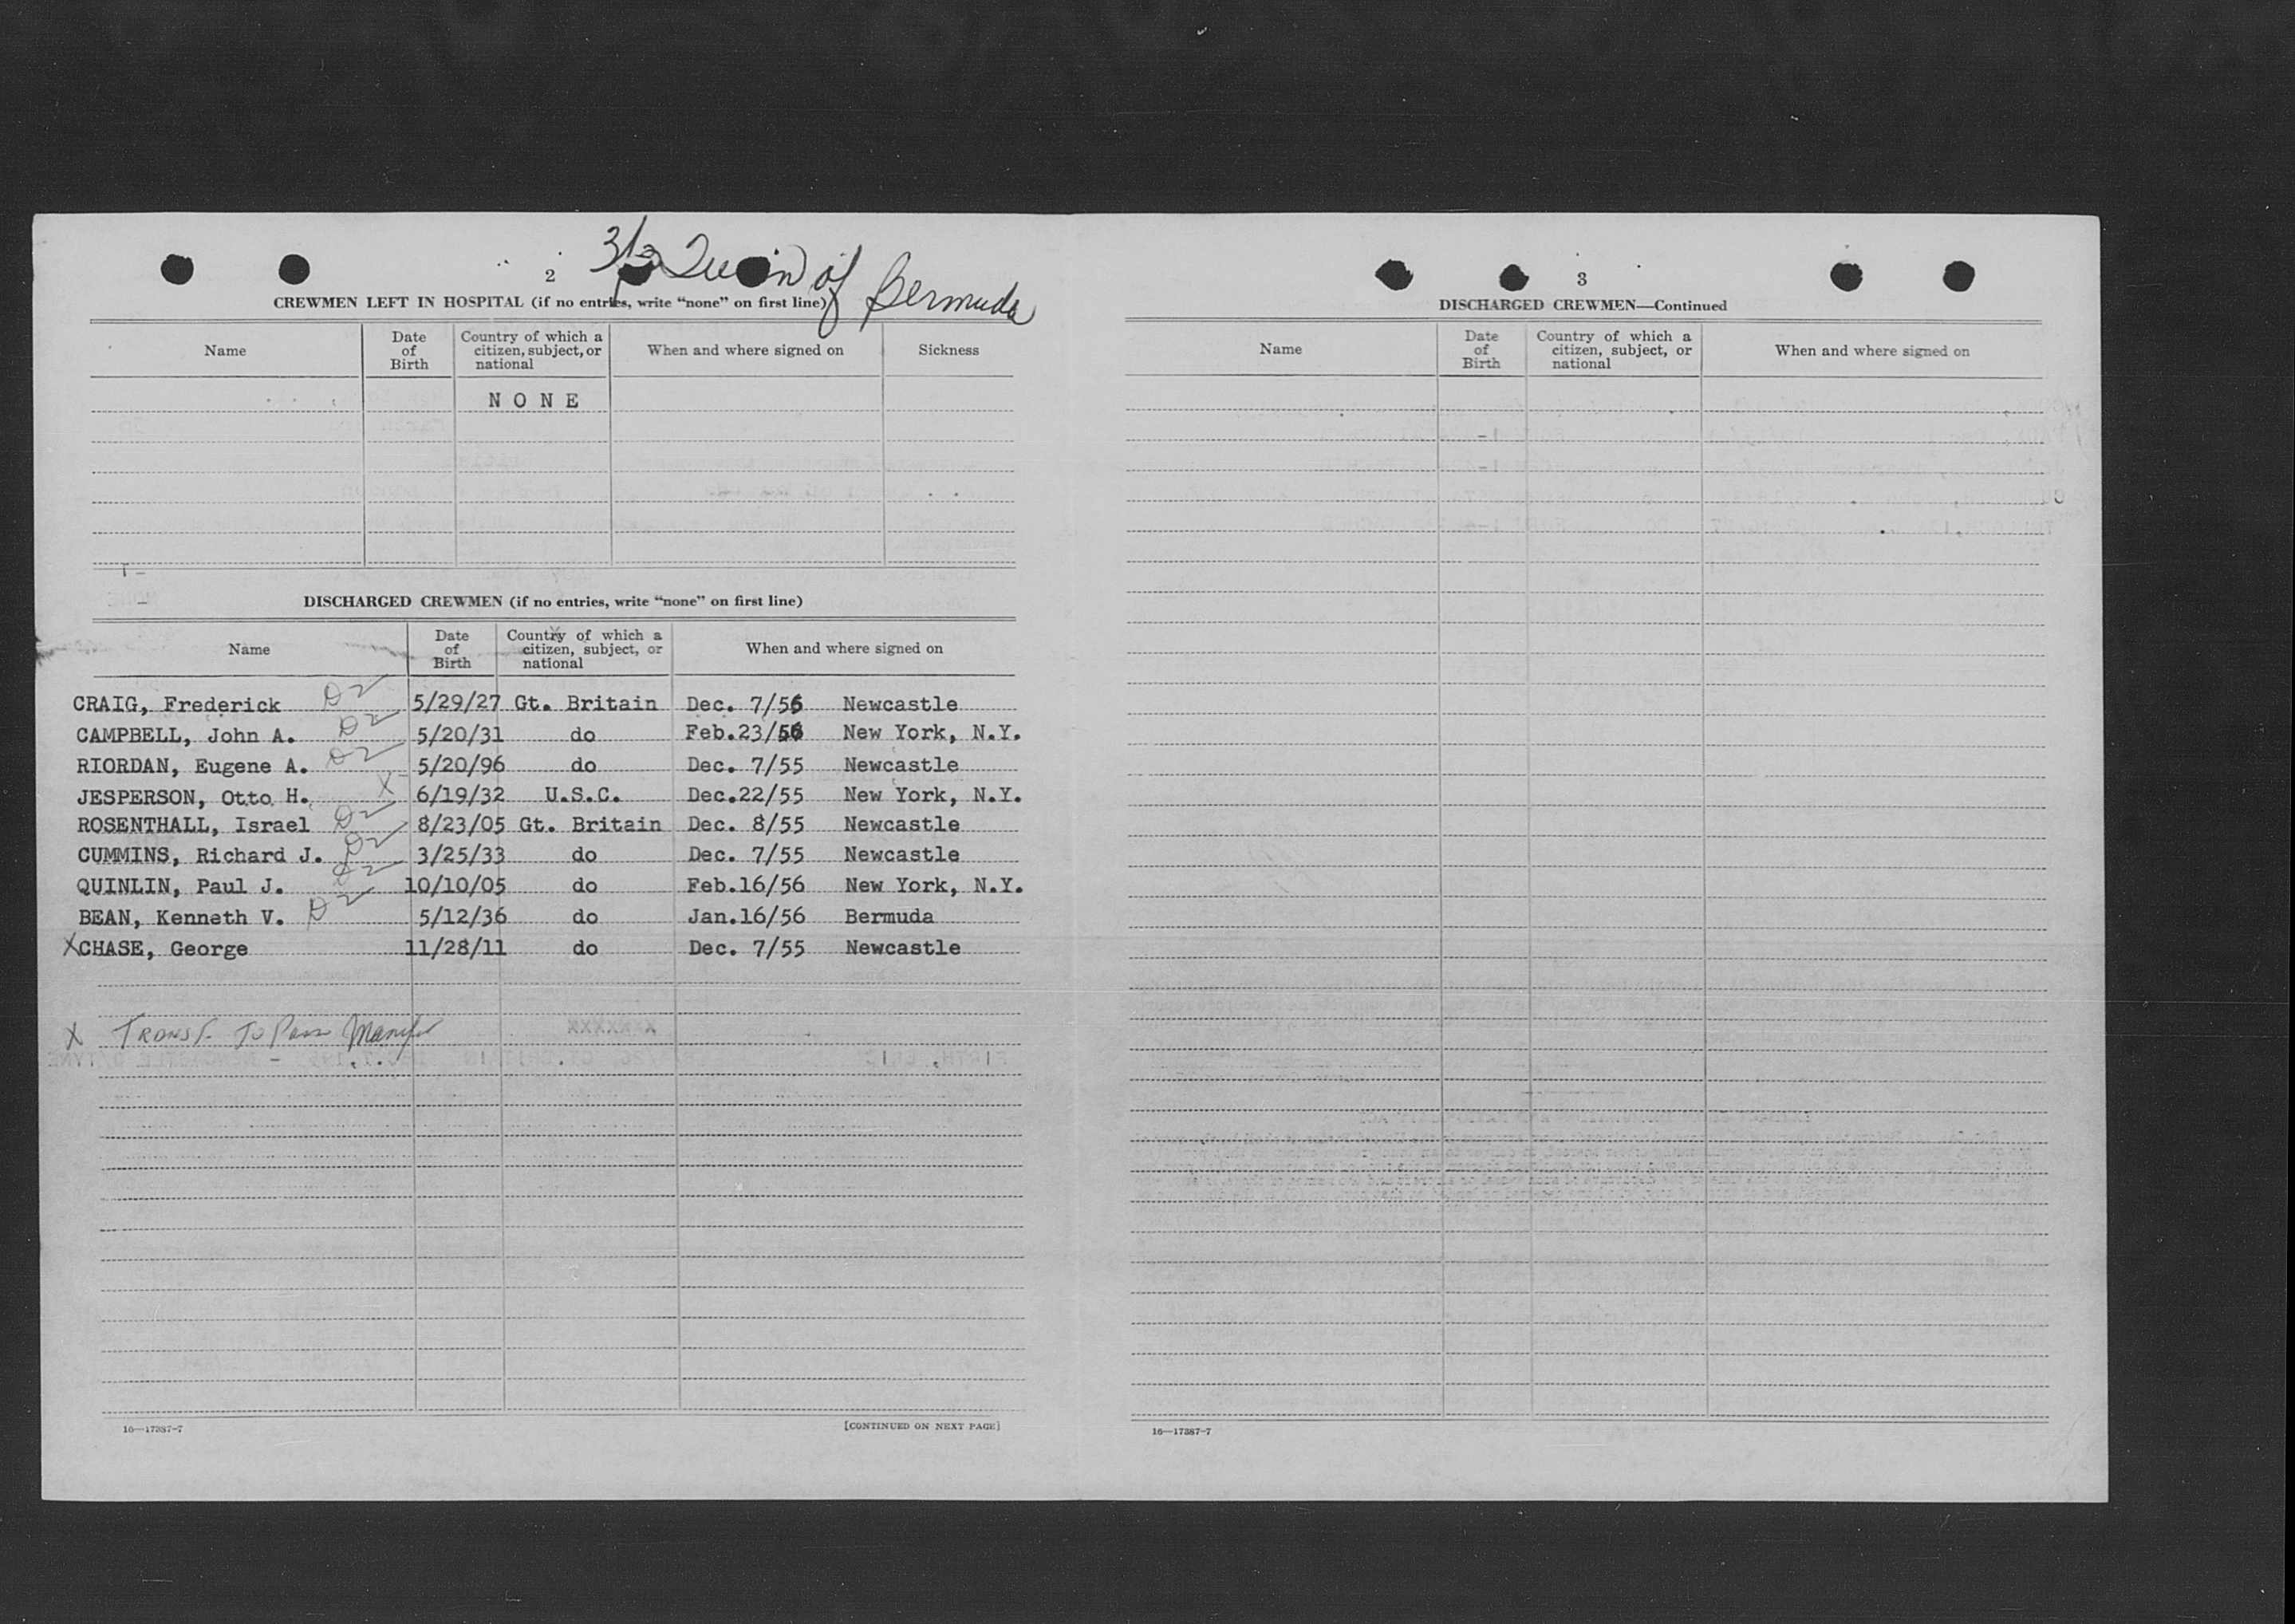 2
3/3 Queen of Bermuda
CREWMEN LEFT IN HOSPITAL (if no entries, write “none” on first line)
Name Date of Birth Country of which a citizen, subject, or national When and where signed on Sickness
N O N E
DISCHARGED CREWMEN (if no entries, write “none” on first line)
Name Date of Birth Country of which a citizen, subject, or national When and where signed on
CRAIG, Frederick D2 5/29/27 Gt. Britain Dec. 7/55 Newcastle
CAMPBELL, John A. D2 5/20/31 do Feb.23/56 New York, N.Y.
RIORDAN, Eugene A. D2 5/20/96 do Dec. 7/55 Newcastle
JESPERSON, Otto H. X 6/19/32 U.S.C. Dec.22/55 New York, N.Y.
ROSENTHALL, Israel D2 8/23/05 Gt. Britain Dec. 8/55 Newcastle
CUMMINS, Richard J. D2 3/25/33 do Dec. 7/55 Newcastle
QUINLIN, Paul J. D2 10/10/05 do Feb.16/56 New York, N.Y.
BEAN, Kenneth V. D2 5/12/36 do Jan.16/56 Bermuda
X CHASE, George 11/28/11 do Dec. 7/55 Newcastle
X Transf. To Pass Manif
16—17387-7 [CONTINUED ON NEXT PAGE]
3
DISCHARGED CREWMEN—Continued
Name Date of Birth Country of which a citizen, subject, or national When and where signed on
16—17387-7